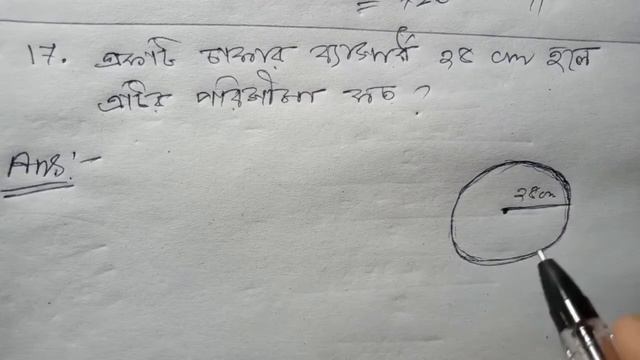 17. একটি চাকার ব্যাসার্ধ ২৪ cm হলে
এটির পরিসীমা কত ?
Ans:-
২৪cm